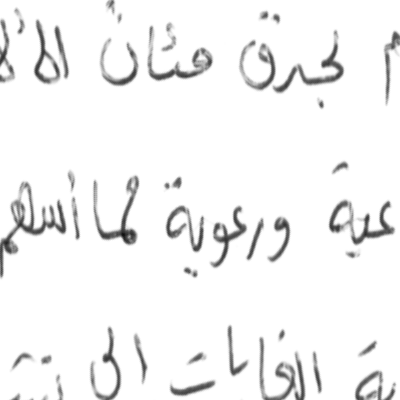 لحرق مئات الآلا
عية ورعوية مما أسهم
ية الغابات الى